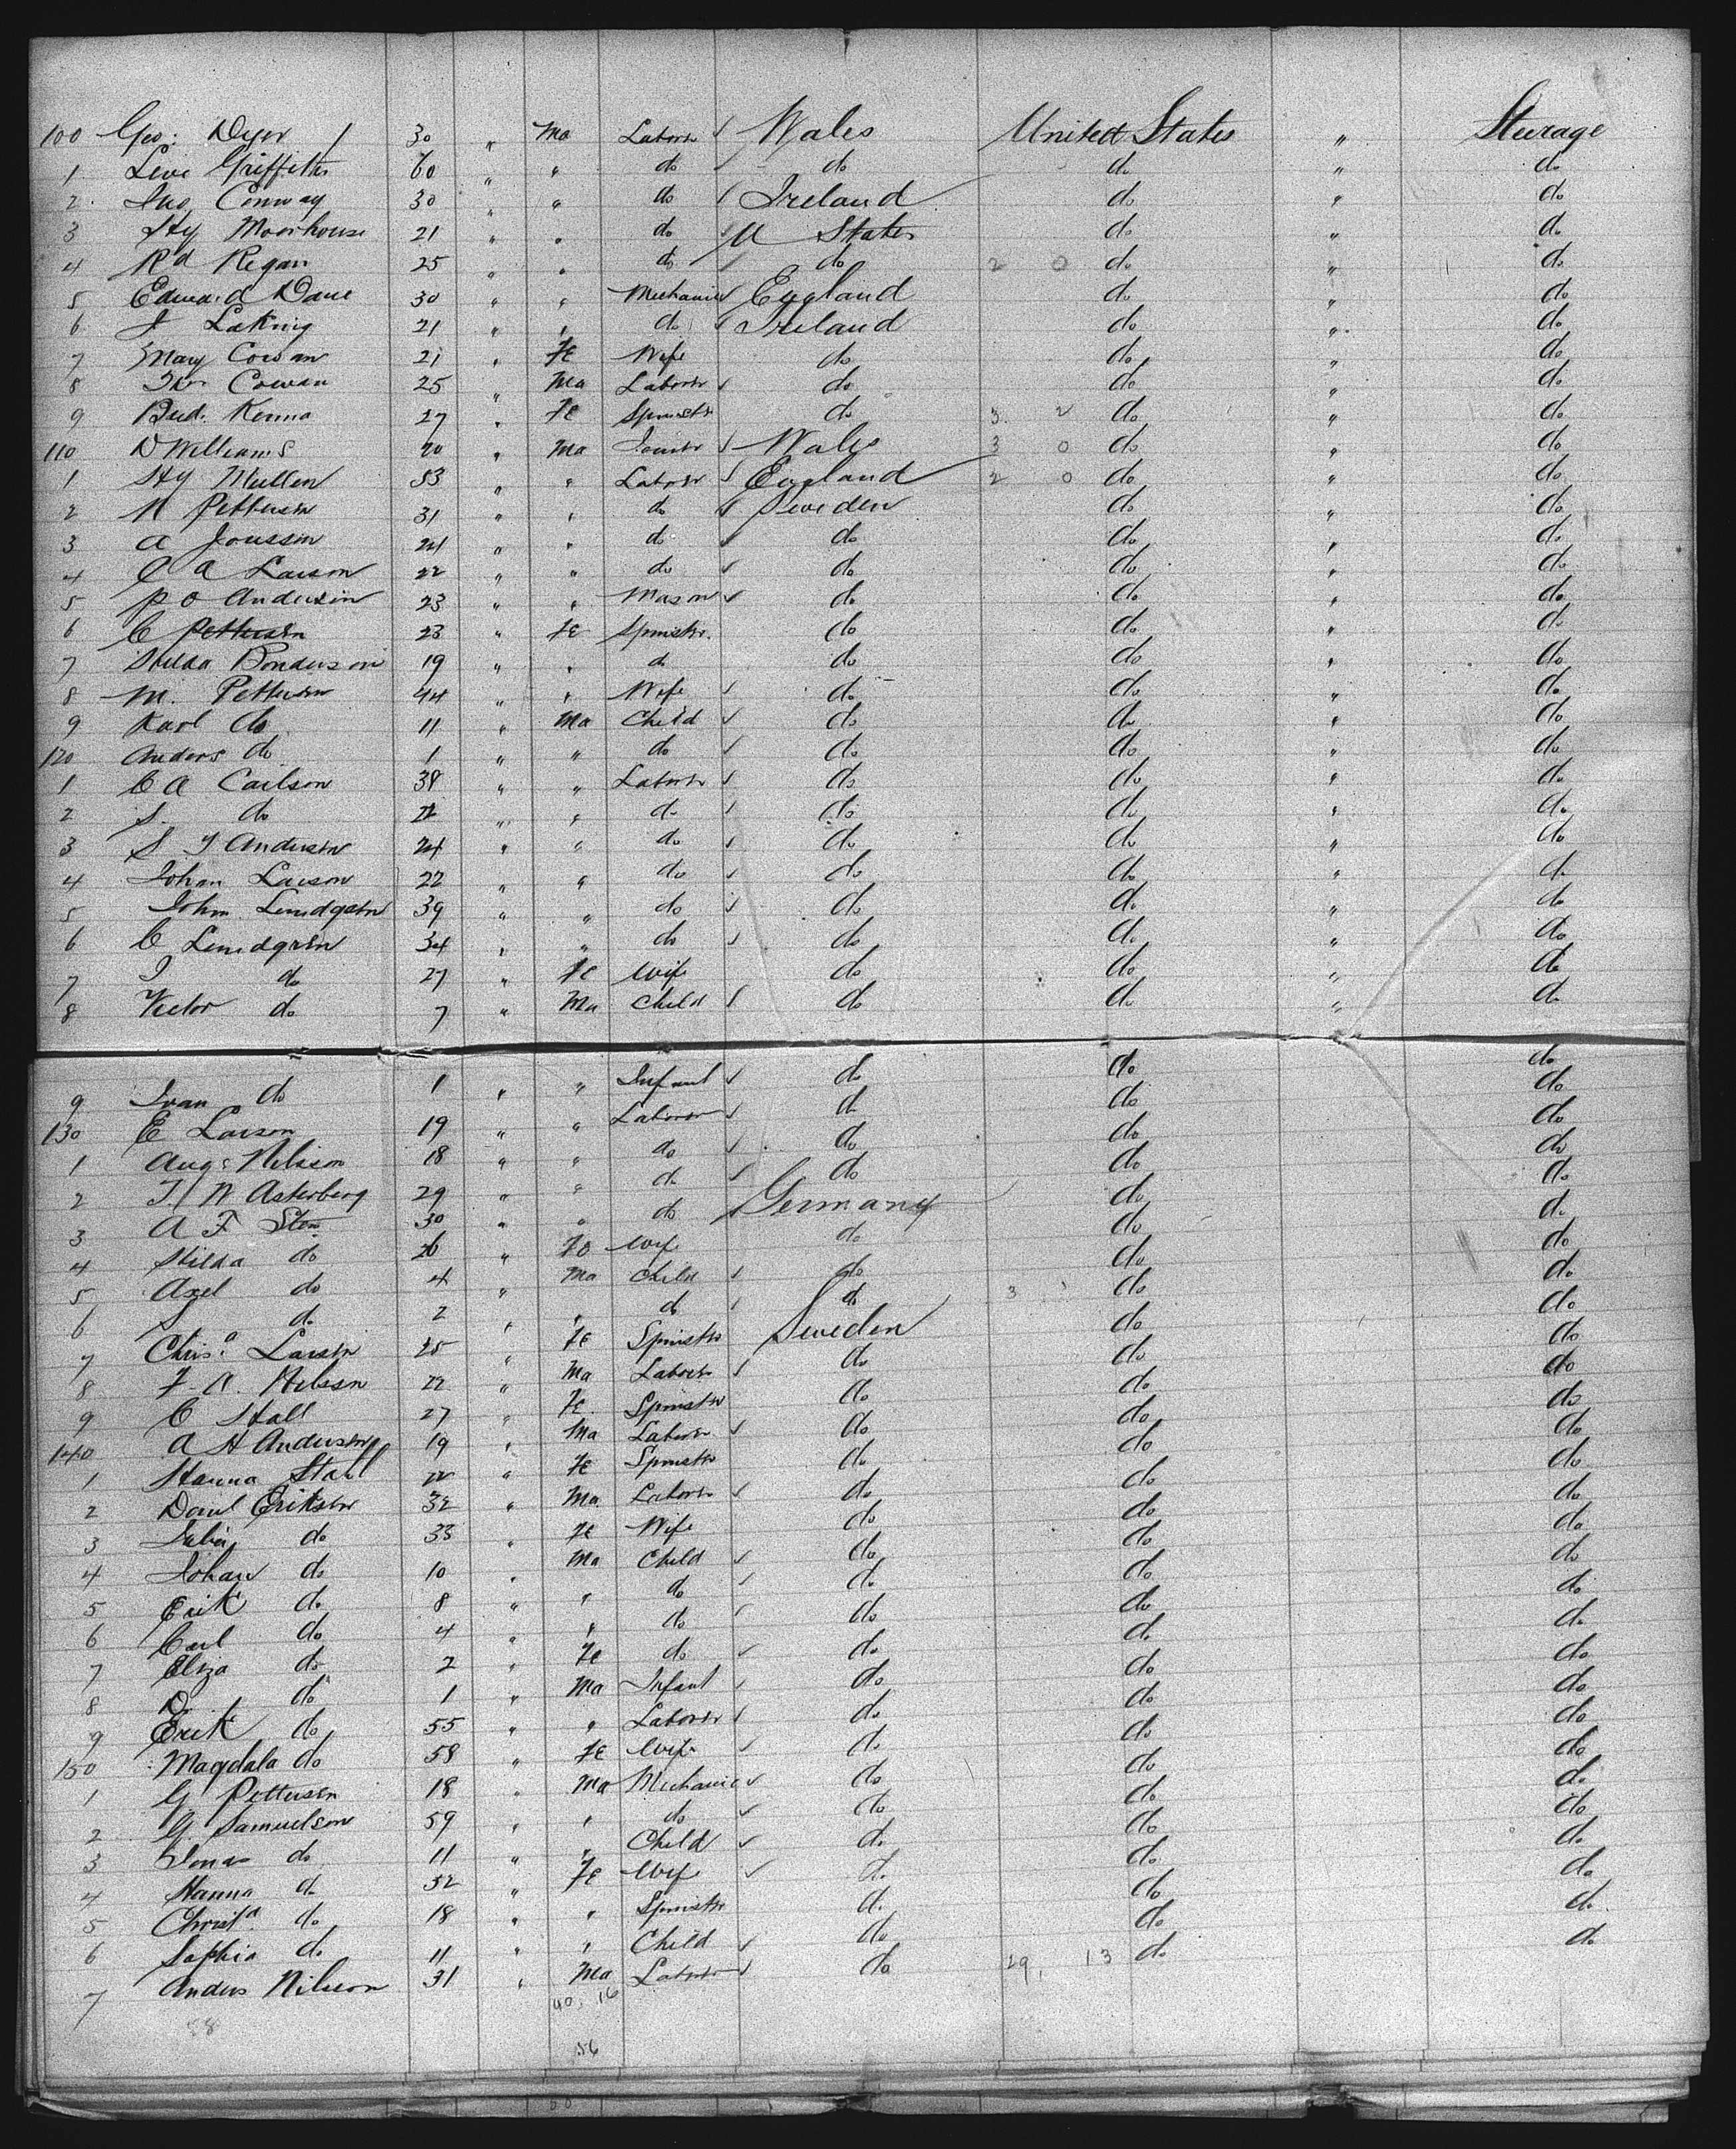 100 Geo: Dyer 30 " Ma Laborer Wales United States " Steerage
1 Levi Griffiths 60 " " do do do " do
2 Jno Conway 30 " " do Ireland do " do
3 Hy Moorhouse 21 " " do U States do " do
4 Rd Regan 25 " " do do 2 0 do " do
5 Edward Dane 30 " " Mechanic England do " do
6 J 21 " " do Ireland do " do
7 Mary Cowan 21 " Fe Wife do do " do
8 Thos Cowan 25 " Ma Laborer do do " do
9 Brid. Kenna 27 " Fe Spinster do 3 2 do " do
110 D Williams 20 " Ma Wales 3 0 do " do
1 Hy Mullen 53 " " Laborer England 2 0 do " do
2 N Petterson 31 " " do Sweden do " do
3 A Jonsson 24 " " do do do " do
4 C A Larson 22 " " do do do " do
5 P O Anderson 23 " " Mason do do " do
6 C Petterson 23 " Fe Spinster do do " do
7 Hilda Bonderson 19 " " do do do " do
8 M. Petterson 44 " " Wife do do " do
9 Karl do 11 " Ma Child do do " do
120 Anders do 1 " " do do do " do
1 C A Carlson 38 " " Laborer do do " do
2 S. do 22 " " do do do " do
3 S J Anderson 24 " " do do do " do
4 Johan Larson 22 " " do do do " do
5 John Lundgren 39 " " do do do " do
6 C Lundgren 34 " " do do do " do
7 I do 27 " Fe Wife do do " do
8 Victor do 7 " Ma Child do do " do
9 Ivan do 1 " " Infant do do do
130 E Larson 19 " " Laborer do do do
1 Aug: Nilsson 18 " " do do do do
2 J. W Asterberg 29 " " do do do do
3 A F Sten 30 " " do Germany do do
4 Hilda do 26 " Fe Wife do do do
5 Axel do 4 " Ma Child do do do
6 S do 2 " " do do 3 do do
7 Chris.a Larson 25 " Fe Spinster Sweden do do
8 F. A. Nilsson 22 " Ma Laborer do do do
9 C Hall 27 " Fe. Spinster do do do
140 A H Anderson 19 " Ma Laborer do do do
1 Hanna Stahl 22 " Fe Spinster do do do
2 Danl Erikson 32 " Ma. Laborer do do do
3 do 33 " Fe Wife do do do
4 Johan do 10 " Ma Child do do do
5 Erik do 8 " " do do do do
6 Carl do 4 " " do do do do
7 Eliza do 2 " Fe do do do do
8 D. do 1 " Ma Infant do do do
9 Erik do 55 " " Laborer do do do
150 Magdala do 58 " Fe Wife do do do
1 G Petterson 18 " Ma Mechanic do do do
2 G. Samuelson 59 " " do do do do
3 Jonas do 11 " " Child do do do
4 Hanna do 52 " Fe Wife do do do
5 Christa do 18 " " Spinster do do do
6 Sophia do 11 " " Child do do do
7 Anders Nilsson 31 " Ma Laborer do 29, 13 do
40, 16
58
56